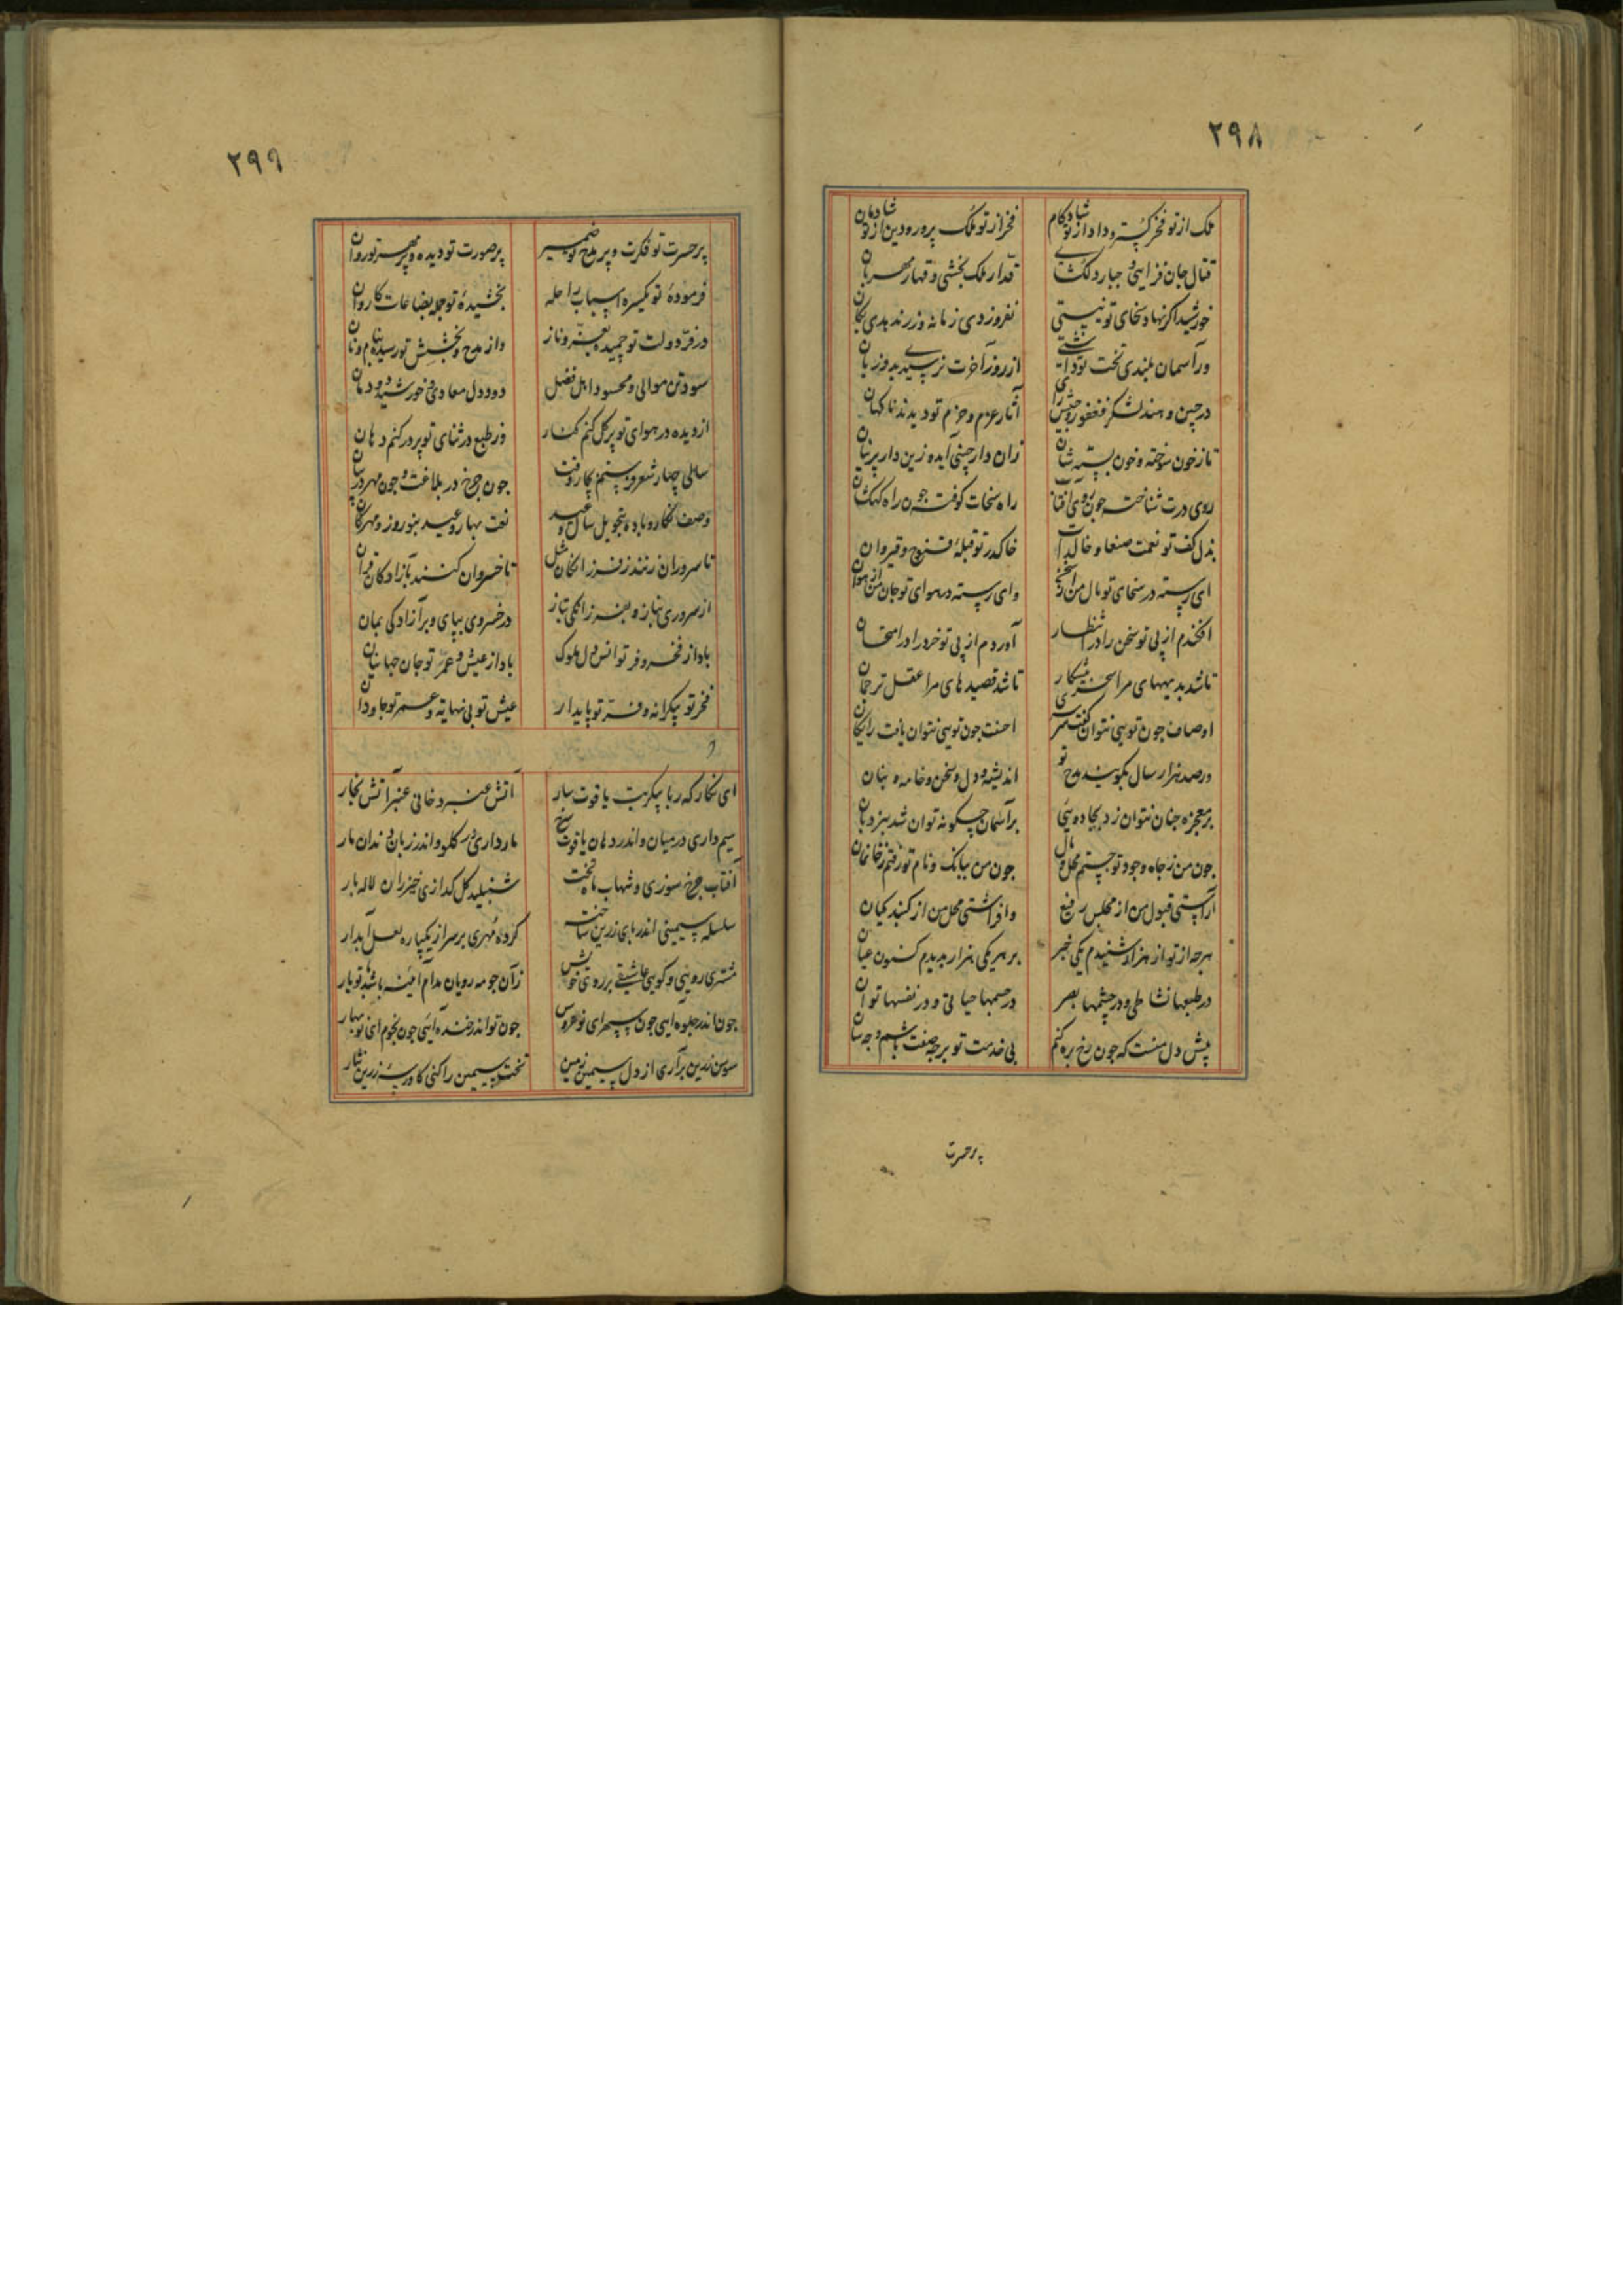 ۲۹۸
ملک از تو فخر گستر و داد از تو شادکام فخر از تو ملک پرور و دین از تو شادمان
قتال جان فزایی و جبار دلگشای قدار ملک بخشی و قهار مهربان
خورشید اگر نهاد سخای تو نیستی نفروزدی زمانه و زر ندهدی بکان
ور آسمان بلندی تخت تو داشتی از روز آخرت نرسیدی بدو زیان
در چین و هند لشکر فغفور و جیش رای آثار عزم و حزم تو دیدند ناکهان
تا ز خون سوخته و خون بسته شان زان دار چینی آید و زین دار پرنیان
روی درت شناخته چون روی آفتاب راه سخات کوفته چون راه کهکشان
بذل کف تو نعمت صنعا و خالدات خاک در تو قبلهٔ قنوج و قیروان
ای رسته در سخای تو مال من از وای رسته در هوای تو جان من از هوان
افکندم از پی تو سخن را در انتظار آوردم از پی تو خرد را در امتحان
تا شد بدیههای مرا سحر پیشکار تا شد قصیدهای مرا عقل ترجمان
اوصاف چون تویی نتوان گفت سرسری احسنت چون تویی نتوان یافت رایکان
ور صد هزار سال بگویند مدح تو اندیشه و دل و سخن و خامه و بنان
بر معجزه چنان نتوان زد بجادویی بر آسمان چگونه توان شد بنردبان
چون من ز جاه وجود تو جستم محل و مال چون من ببانک و نام تو رفتم ز خانمان
آراستی قبول من از مجلس رفیع وافراشتی محل من از کنبد کیان
هرچه از تو از هزار شنیدم یکی خبر بر هر یکی هزار بدیدم کنون عیان
در طبعها نشاطی و در چشمها بصر در جسمها حیاتی و در نفسها توان
پیش دل منست که چون رخ بره کنم بی خدمت تو بر چه صفت باشم و چه سان
پرحسرت
۲۹۹
پر حسرت تو فکرت و پر مدح تو ضمیر پر صورت تو دیده و پر مهر تو روان
فرمودهٔ تو یکسره اسباب راحله بخشیدهٔ تو جمله بضاعات کاروان
در فر دولت تو چمیده بعز و ناز واز مدح و بخشش تو رسیده بنام و نان
سود تن موالی و محسود اهل فضل دود دل معادی و خورشید دودمان
از دیده در هوای تو پر کل کنم کنار وز طبع در ثنای تو پر در کنم دهان
سالی چهار شعر فرستم بکار وقت چون چرخ در بلاغت و چون مهر در بیان
وصف نکار و باده بتحویل سال و عید نعت بهار و عید بنوروز و مهرکان
تا سروران زنند ز فرزانکان مثل تا خسروان کنند بآزادکان قران
از سروری بناز و بفرزانکی بتاز در خسروی بپای و بر آزادکی بمان
باد از فخر و فر تو انس دل ملوک باد از عیش و عمر تو جان جهانیان
فخر تو بیکرانه و فر تو پایدار عیش تو بی نهایه و عمر تو جاودان
ای نکار کهربا پیکر بت یاقوت سار آتش عنبر دخانی عنبر آتش بخار
سیم داری در میان و اندر دهان یاقوت سرخ مار داری در کلو و اندر زبان دندان مار
آفتاب چرخ سوزی و شهاب ماه تخت شنبلید کل کدازی خیزران لاله بار
سلسله سیمینی اندر پای زرین ساخت کردهٔ مهری بر سر از یکپاره لعل آبدار
مشتری رویی و کویی عاشقی بر روی خویش زآن چو مه رویان مدام آینه باشد با تو یار
چون اندر جلوه آیی چون سپهر ای نو عروس چون تو اندر خنده آیی چون نجوم ای نوبهار
سوسن زرین برآری از دل سیمین زمین تخت سیمین را کنی کاورسه زرین نثار